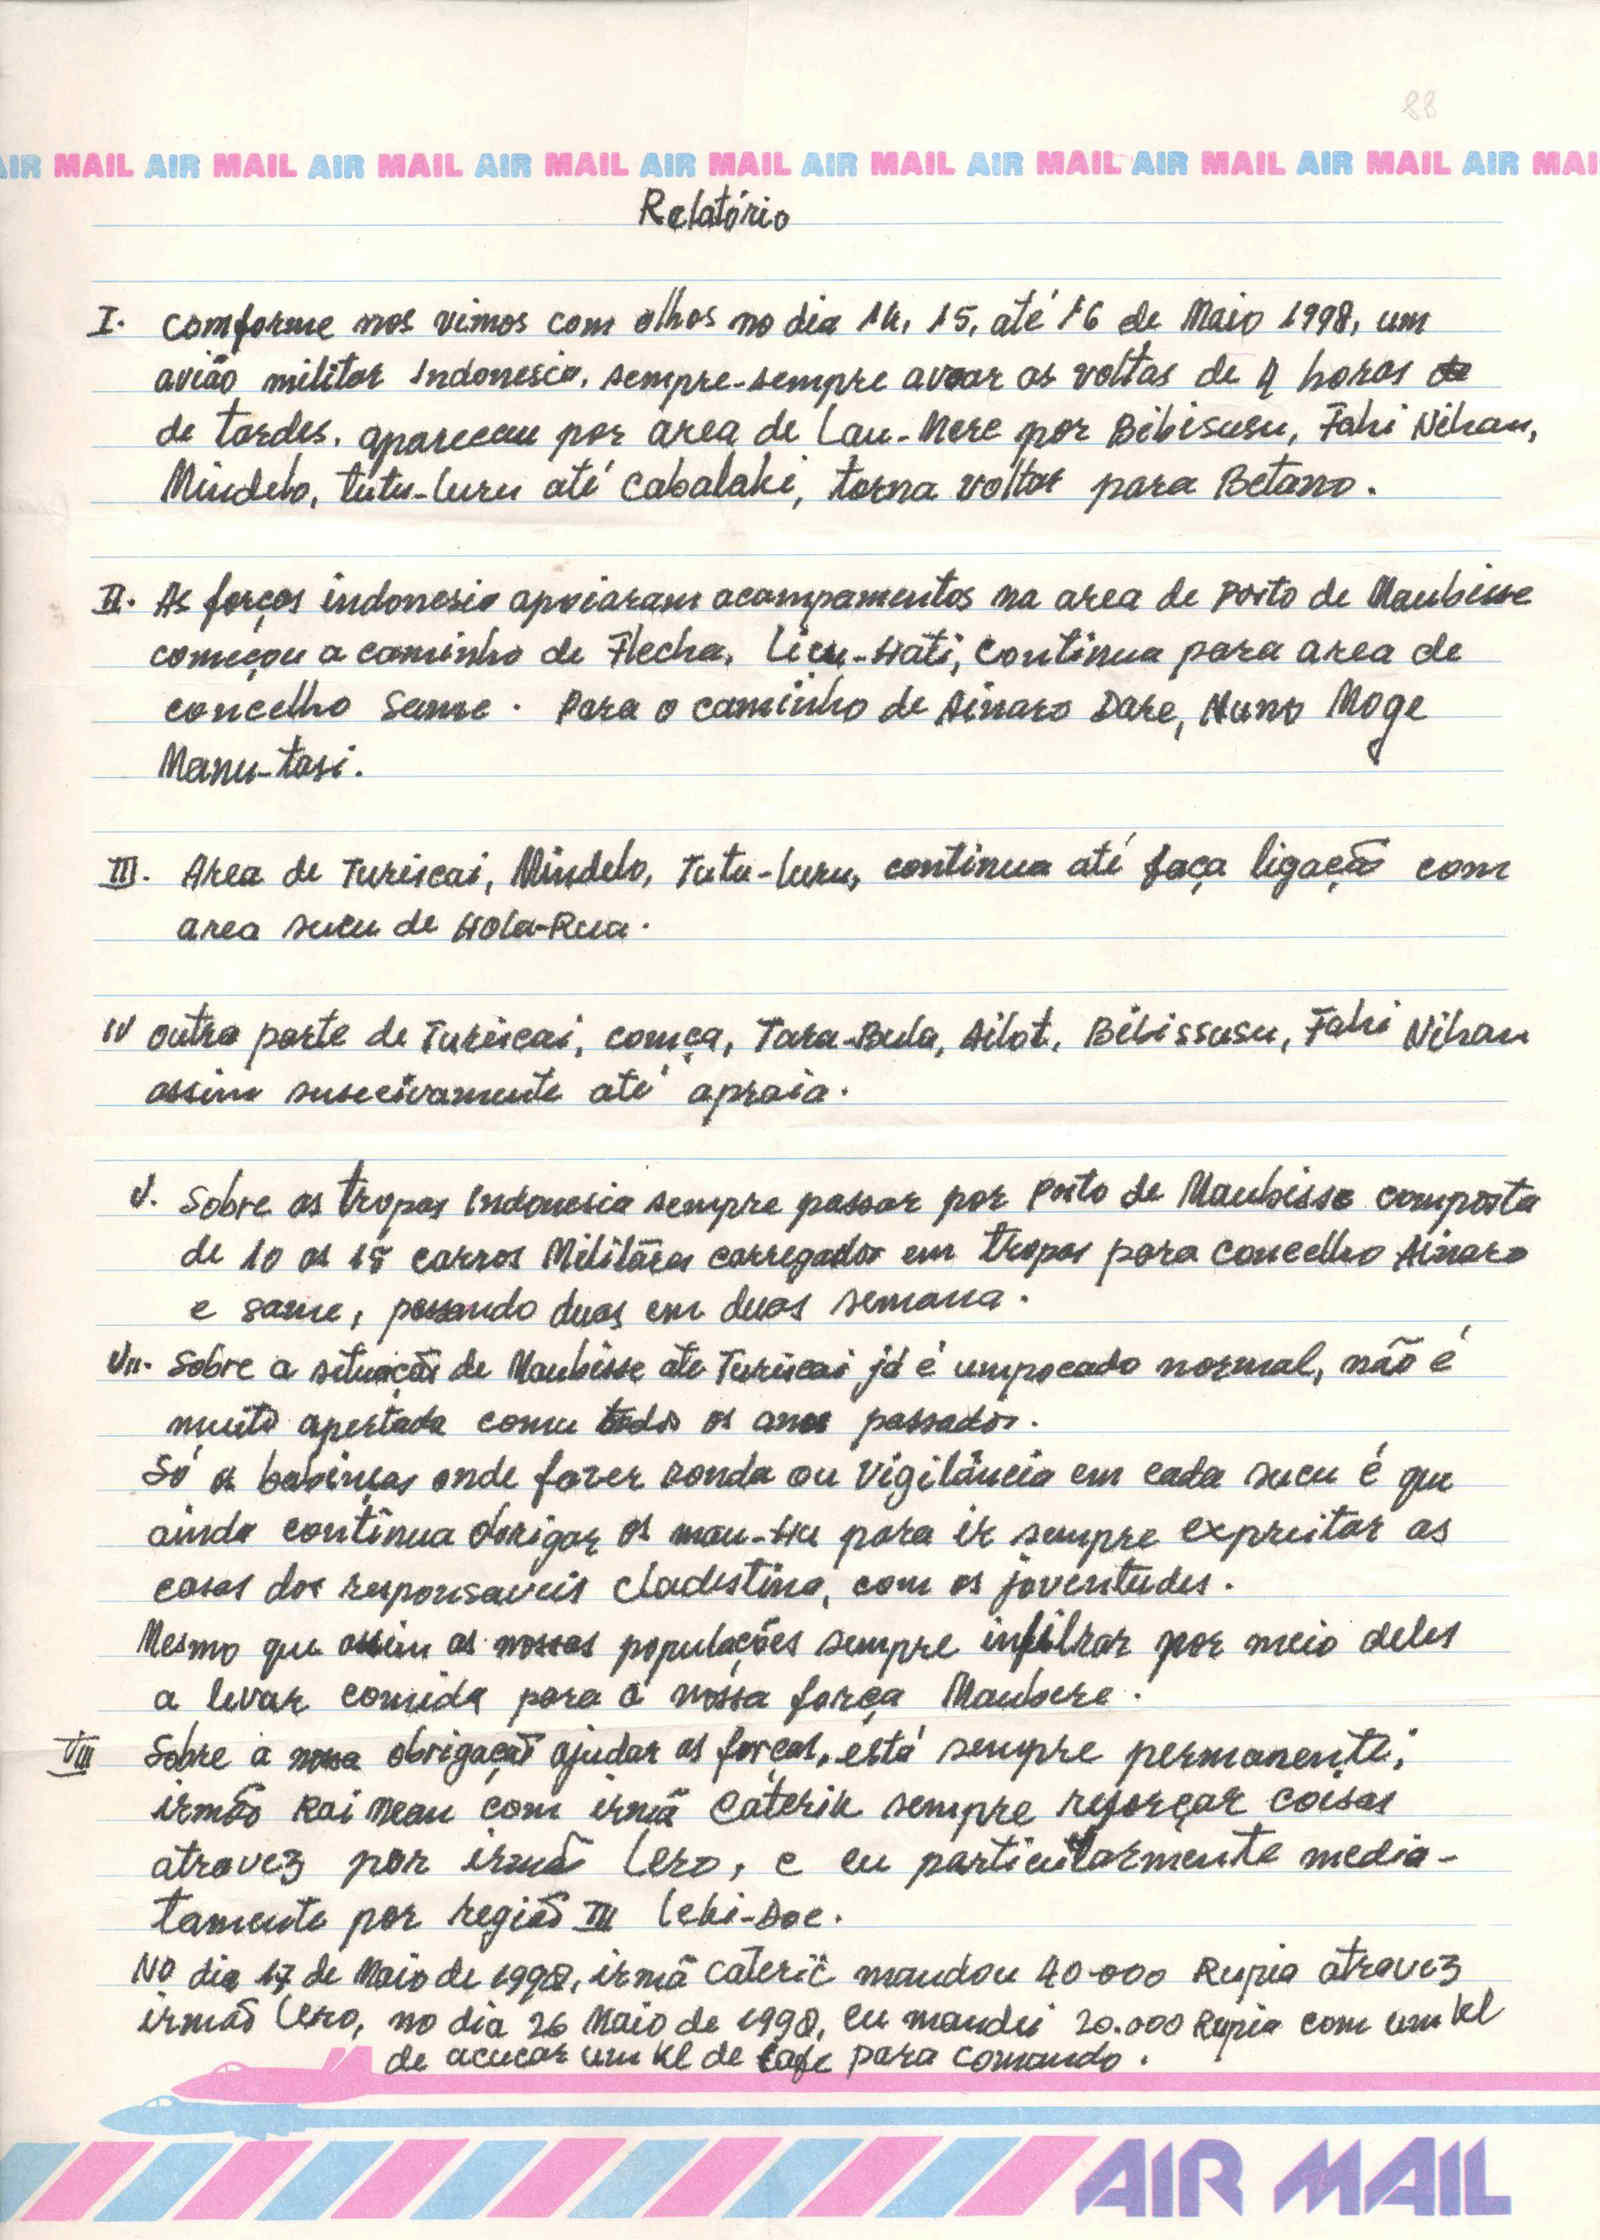 88
AIR MAIL AIR MAIL AIR MAIL AIR MAIL AIR MAIL AIR MAIL AIR MAIL AIR MAIL AIR MAIL AIR MAI
Relatório
I. comforme nos vimos com olhos no dia 14, 15, até 16 de Maio 1998, um
avião militar Indonesia, sempre-sempre avoar as voltas de 4 horas
de tardes, apareceu por area de Lau-Mere por Bibisusu, Fahi Nihan,
Mindelo, tutu-luru até cabalaki, torna voltar para Betano.
II. As forças indonesia apoiaram acampamentos na area de Posto de Maubisse
começou a caminho de Flecha, Licu-Hati, Continua para area de
concelho Same. Para o caminho de Ainaro Dare, Nuno Moge
Manu-tasi.
III. Area de Turiscai, Mindelo, Tutu-luru, continua até faça ligação com
area sucu de Hola-Rua.
IV outra parte de Turiscai, comça, Tara-Bula, Ailot, Bibissusu, Fahi Nihan
assim suscecivamente até apraia.
V. Sobre as tropas Indonesia sempre passar por Posto de Maubisse composta
de 10 as 15 carros Militares carregados em tropas para concelho Ainaro
e same, passando duas em duas semana.
VII. Sobre a situação de Maubisse ate Turiscai já é umpocado normal, não é
muito apertada comu todos os anos passados.
Só os babinças onde fazer ronda ou vigilância em cada sucu é que
ainda continua obrigar os mau-Hu para ir sempre expreitar as
casas dos responsaveis cladestina, com os joventudes.
Mesmo que assim as nossas populações sempre infiltrar por meio deles
a levar comida para a nossa força Maubere.
VIII Sobre a nossa obrigação ajudar as forças, está sempre permanente;
irmão Rai Mean com irmã Caterik sempre reforçar coisas
atravez por irmão Lero, e eu particularmente media-
tamente por região III Leki-Doe.
No dia 17 de Maio de 1998, irmã cateric mandou 40.000 Rupia atravez
irmão Lero, no dia 26 Maio de 1998, eu mandei 20.000 Rupia com um kl
de acucar um kl de cafe para comando.
AIR MAIL